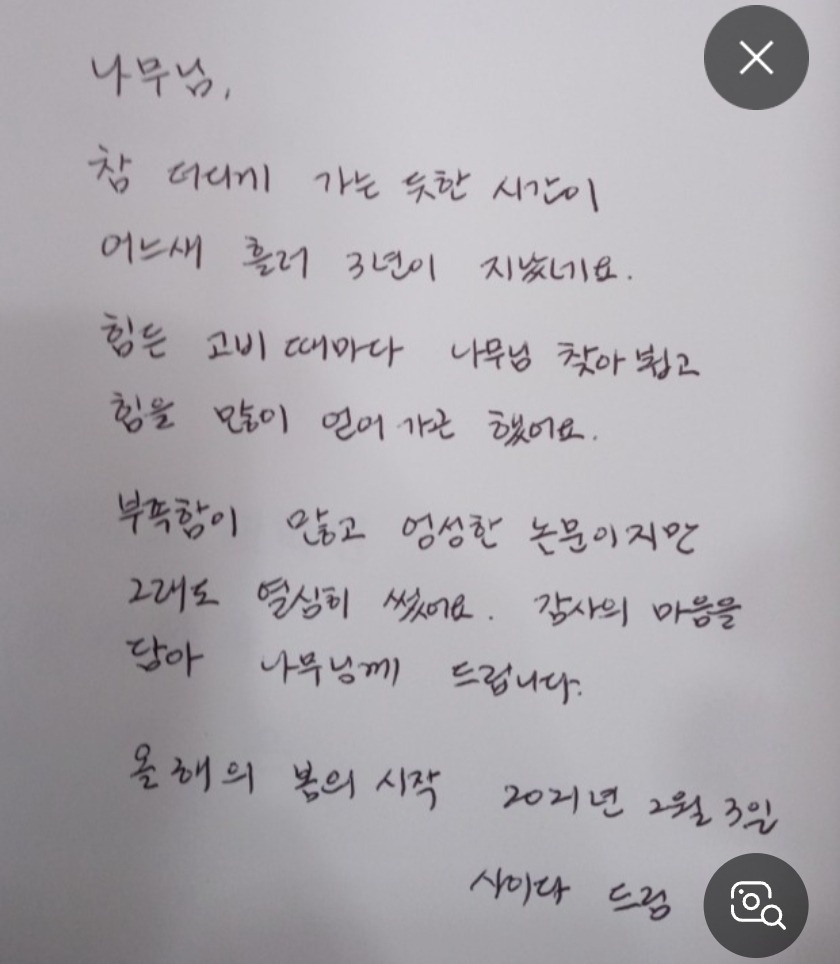 나무님,
참 더디게 가는 듯한 시간이
어느새 흘러 3년이 지났네요.
힘든 고비 때마다 나무님 찾아 뵙고
힘을 많이 얻어 가곤 했어요.
부족함이 많고 엉성한 논문이지만
그래도 열심히 썼어요. 감사의 마음을
담아 나무님께 드립니다.
올해의 봄의 시작 2021년 2월 3일
사이다 드림